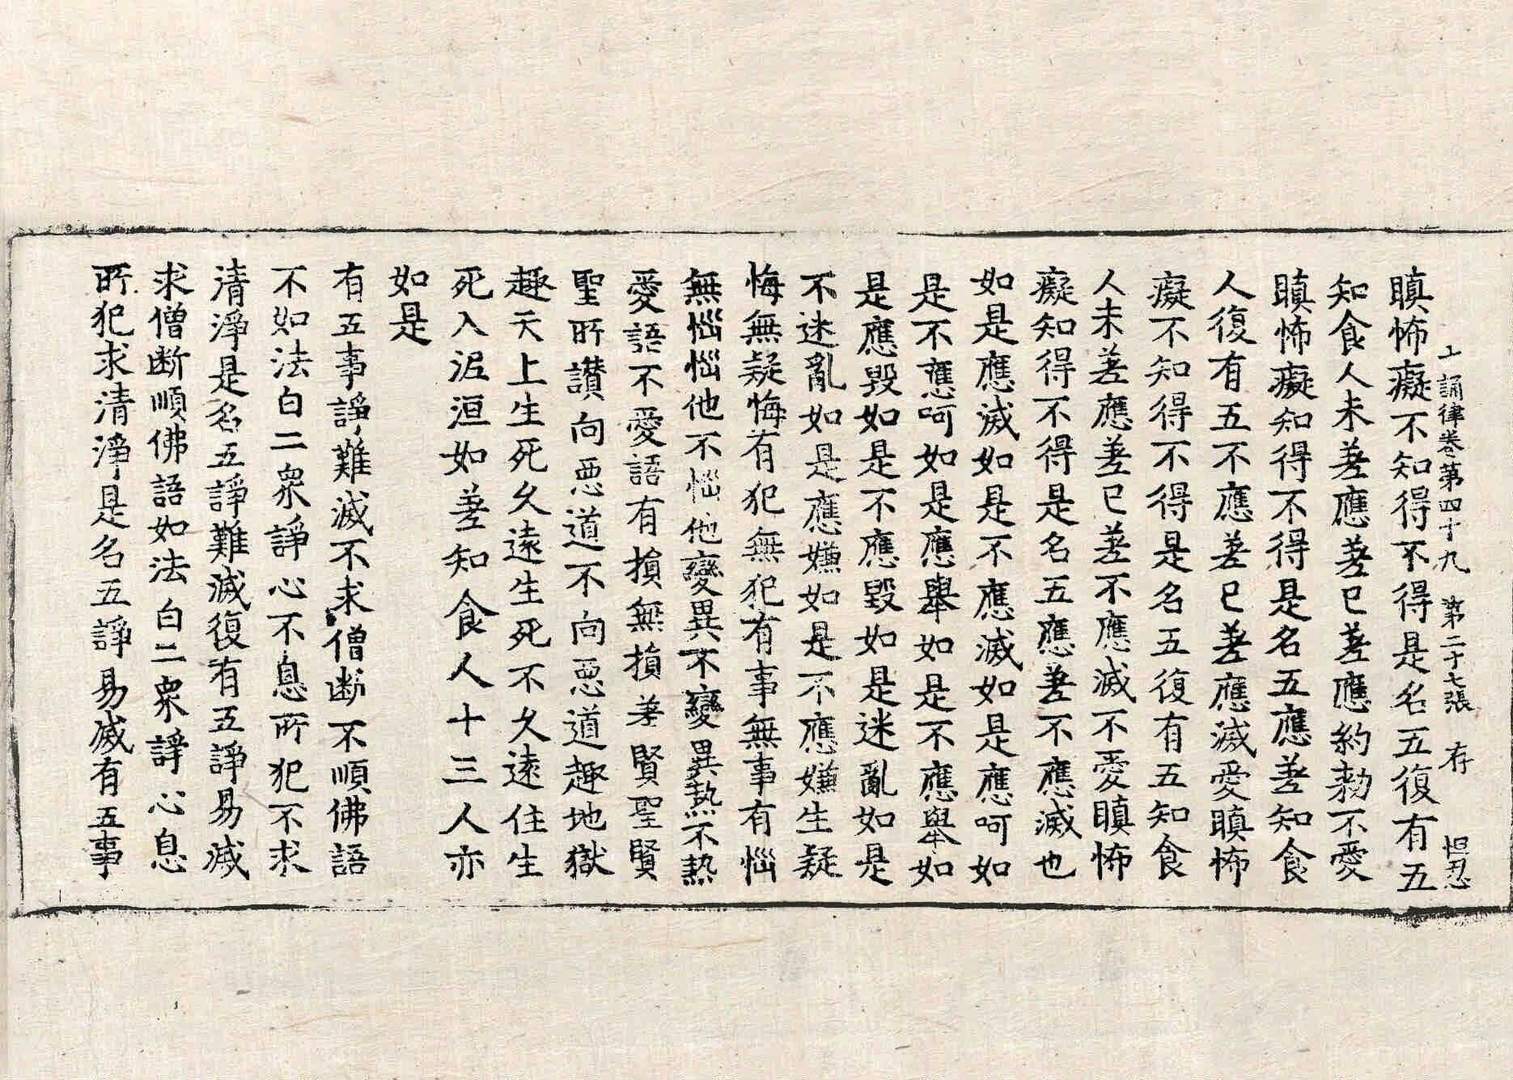 誦律卷第四十九 第二十七張 存
瞋怖癡不知得不得是名五復有五
知食人未差應差已差應約勑不愛
瞋怖癡知得不得是名五應差知食
人復有五不應差已差應滅愛瞋怖
癡不知得不得是名五復有五知食
人未差應差已差不應滅不愛瞋怖
癡知得不得是名五應差不應滅也
如是應滅如是不應滅如是應呵如
是不應呵如是應舉如是不應舉如
是應毀如是不應毀如是迷亂如是
不迷亂如是應嫌如是不應嫌生疑
悔無疑悔有犯無犯有事無事有惱
無惱惱他不惱他變異不變異熱不熱
愛語不愛語有損無損差賢聖賢
聖所讃向惡道不向惡道趣地獄
趣天上生死久遠生死不久遠住生
死入泥洹如差知食人十三人亦
如是
有五事諍難滅不求僧断不順佛語
不如法白二衆諍心不息所犯不求
清淨是名五諍難滅復有五諍易滅
求僧断順佛語如法白二衆諍心息
所犯求清淨是名五諍易滅有五事